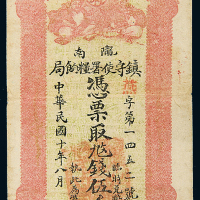 隴南
鎮守使署糧餉局
燕字第一四五二號
憑票取兌錢伍
執此為
中華民國十年八月